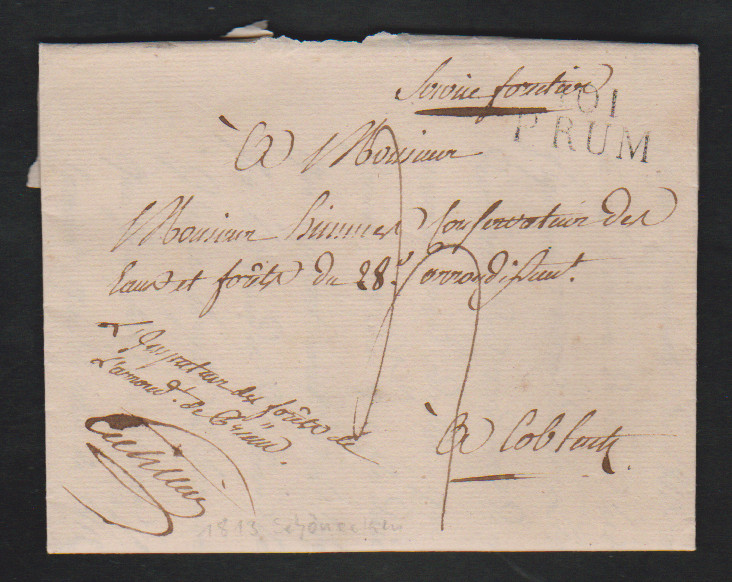 Service forestier
101
PRUM
à Monsieur
Monsieur Conservateur des
Eaux et forêts du 28.e arrondissent.
à Coblentz
L'Inspecteur des forêts de
L'arrond.t de Prüm.
1813 Schönecken